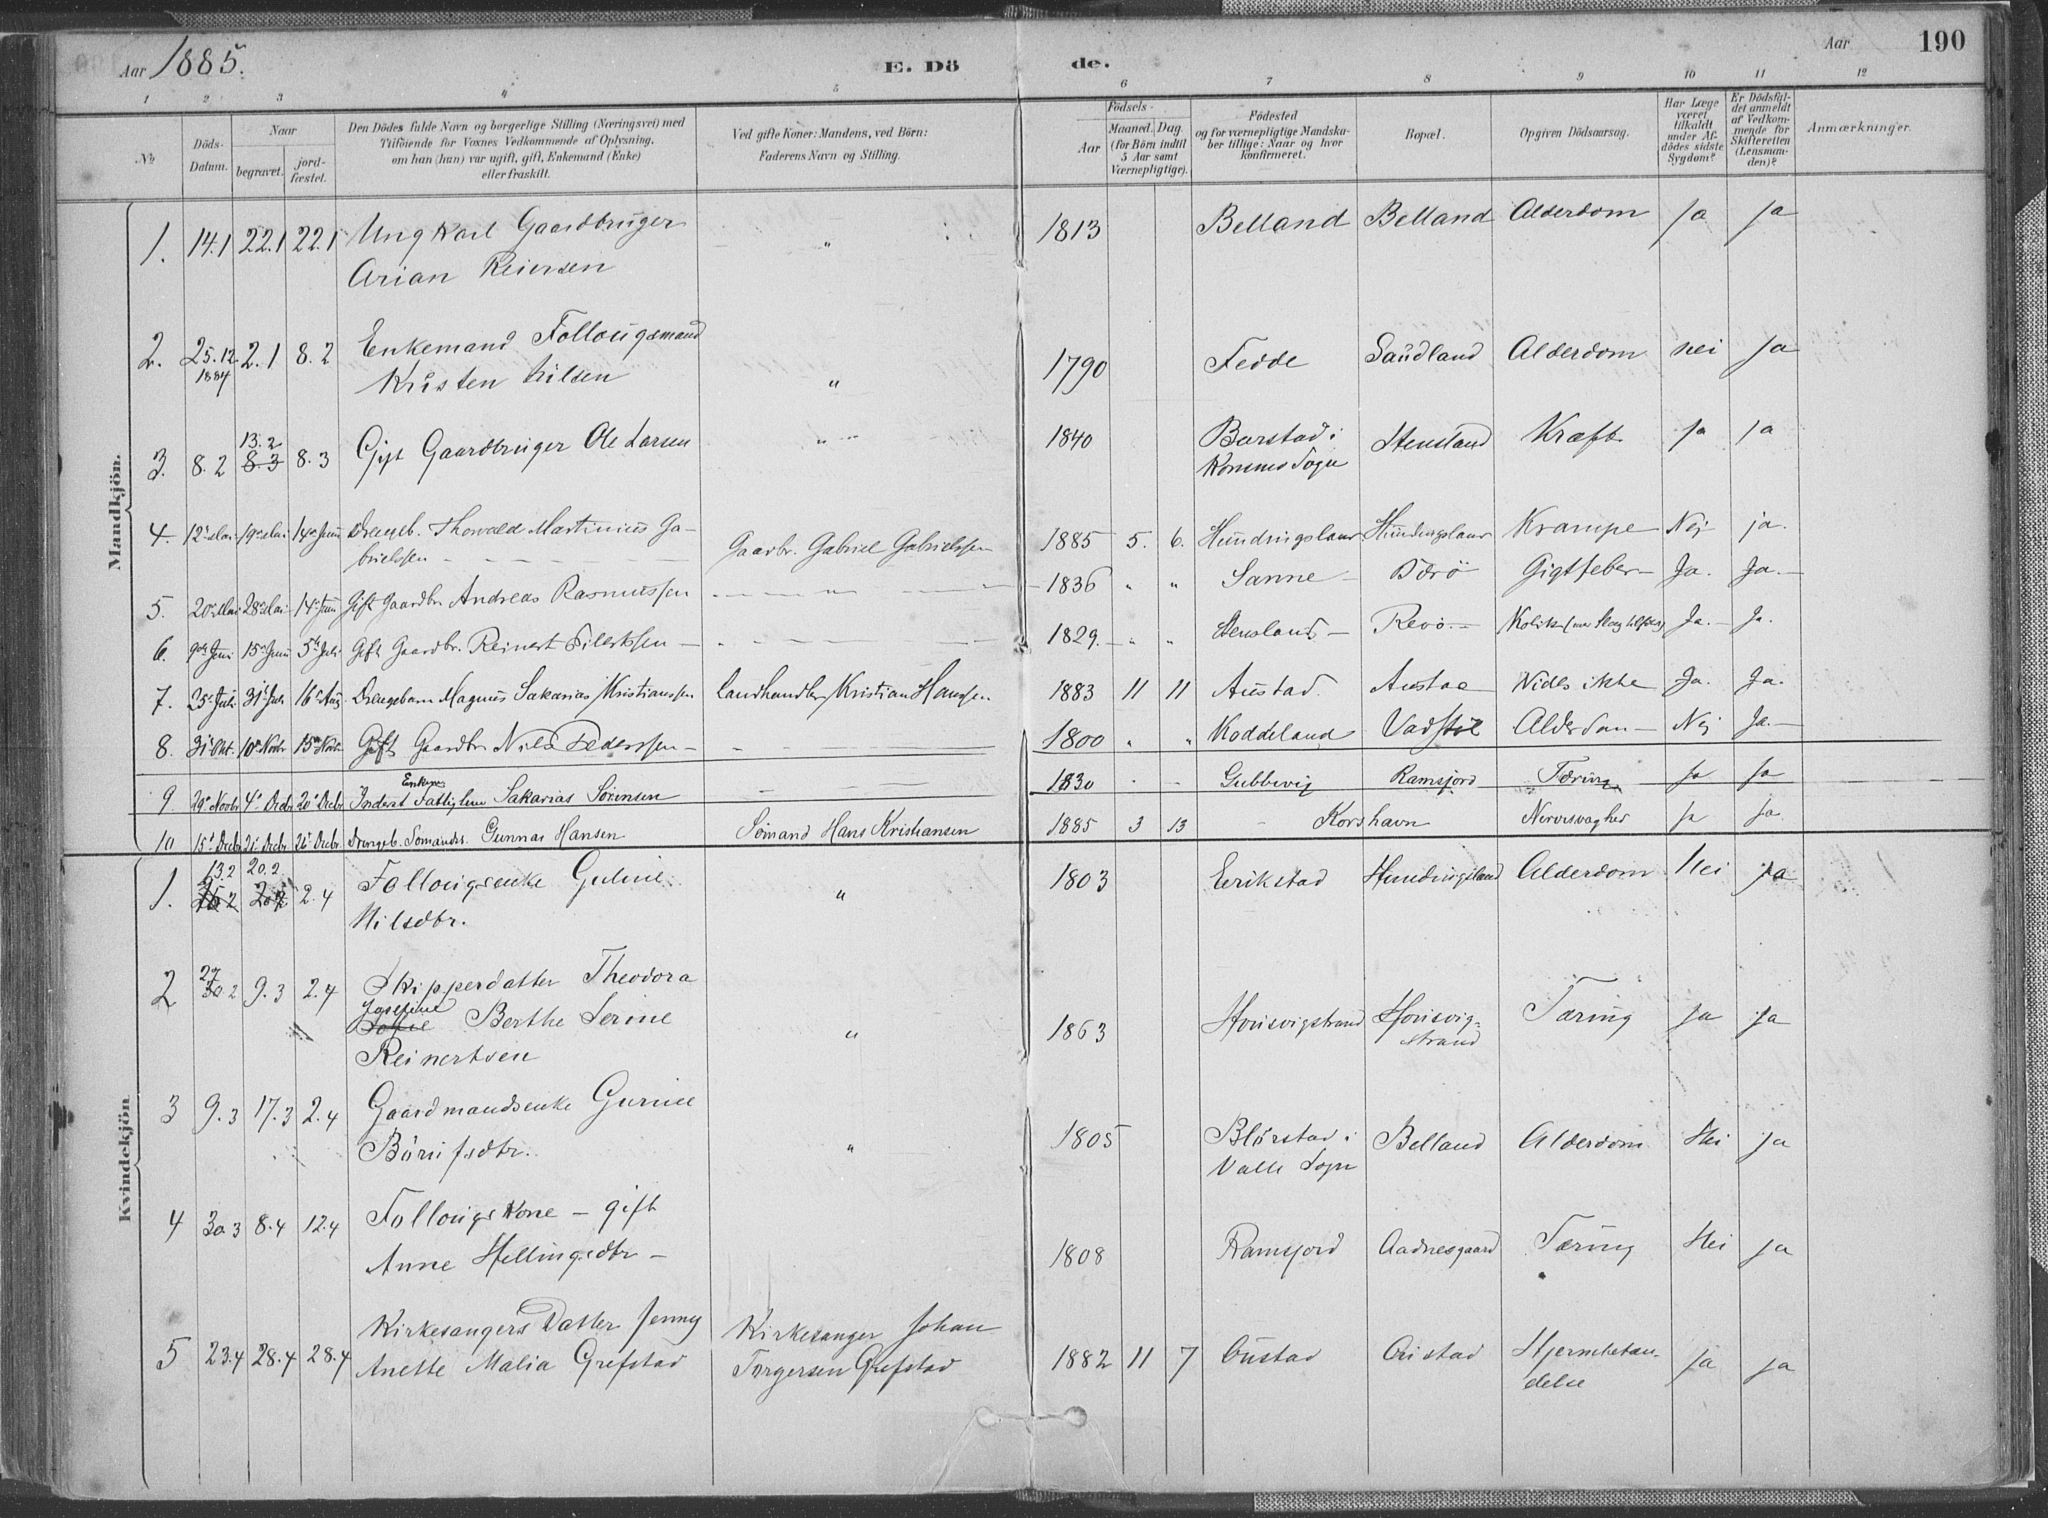 Aar 1885.
E. Dö
de.
Aar
190
1 2 3 4 5 6 7 8 9 10 11 12
No
Döds-Datum.
Naar
begravet.
jord-fæstet.
Den Dödes fulde Navn og borgerlige Stilling (Næringsvei) med
Tilföiende for Voxnes Vedkommende af Oplysning,
om han (hun) var ugift, gift, Enkemand (Enke)
eller fraskilt.
Ved gifte Koner: Mandens, ved Börn:
Faderens Navn og Stilling.
Födsels-
Aar
Maaned. Dag
(for Börn indtil
5 Aar samt
Værnepligtige).
Födested
og for værnepligtige Mandska-
ber tillige: Naar og hvor
konfirmeret.
Bopæl.
Opgiven Dödsaarsag.
Har Læge
været
tilkaldt
under Af-
dödes sidste
Sygdom?
Er Dödsfal-
det anmeldt
af Vedkom-
mende for
Skifteretten
(Lensman-
den)?
Anmærkninger.
Mandkjön.
1. 14.1 22.1 22.1 Ungkarl Gaardbruger " 1813 Belland Belland Alderdom Ja Ja
Arian Reiersen
2. 25.12. 2.1 8.2 Enkemand Follougsmand 1790 Fedde Saudland Alderdom Nei Ja
1884 Kristen Nilsen "
3. 8.2 13.2 8.3 8.3 Gift Gaardbruger Ole Larsen " 1840 Barstad i Stensland Kræft Ja Ja
Sogn
4. 12te Mai 19de Mai 14de Juni Drengeb. Thorvald Martinius Ga- Gaardbr. Gabriel Gabrielssen 1885 5. 6. Hundingsland Hundingsland Krampe Nej ja.
brielssen
5. 20de Mai 28de Mai 14de Juni Gift Gaardbr. Andreas Rasmussen 1836 " " Sanne Gigtfeber Ja. Ja.
6. 9de Juni 15de Juni 5te Juli Gift Gaardbr. Reinert 1829. " " Stensland Revö Kolik Ja. Ja.
7. 25de Juli 31te Juli 16de Aug. Drengebarn Magnus Sakarias Kristianssen Landhandler Kristian Hanssen 1883 11 11 Austad. Austad Vides ikke Ja. Ja.
8. 31te Okt. 10de Novbr 15de Novbr. Gift Gaardbr Nils Pederssen 1800 " " Koddeland Vadstöl Alderdom Nej Ja.
9 29de Novbr 4de Decbr 20de Decbr Enkem. Inderst Fattiglem Sakarias Sörensen 1830 Gubbevig Ramsjord Tæring Ja Ja
10 15de Decbr 21de Decbr 26de Decbr Drengeb. Gunnar Hansen Sömand Hans Kristiansen 1885 3 13 Korshavn Nervesvaghed Ja Ja
Kvindekjön
1. 13.2 20.2 2.4 Follougsenke Guline " 1803 Eerikstad Hundingsland Alderdom Nei Ja
Nilsdtr.
2 27 30 2 9.3 2.4 Skipperdatter Theodora
Josefine Sofie Berthe Serine " 1863 Housvigstrand Housvig-strand Tæring Ja Ja
Reinertsen
3 9.3 17.3 2.4 Gaardmandsenke Gurine 1805 i Belland Alderdom Nei Ja
Börufsdtr. " Valle Sogn
4 30.3 8.4 12.4 Follougskone – gift
Anne Hellingsdtr – 1808 Ramsjord Aadnesgaard Tæring Nei Ja
5 23.4 28.4 28.4 Kirkesangers Datter Jenny Kirkesanger Johan
Anette Malia Grefstad Torgersen Grefstad 1882 11 7 Oustad Oustad Hjernebetæn-delse Ja Ja